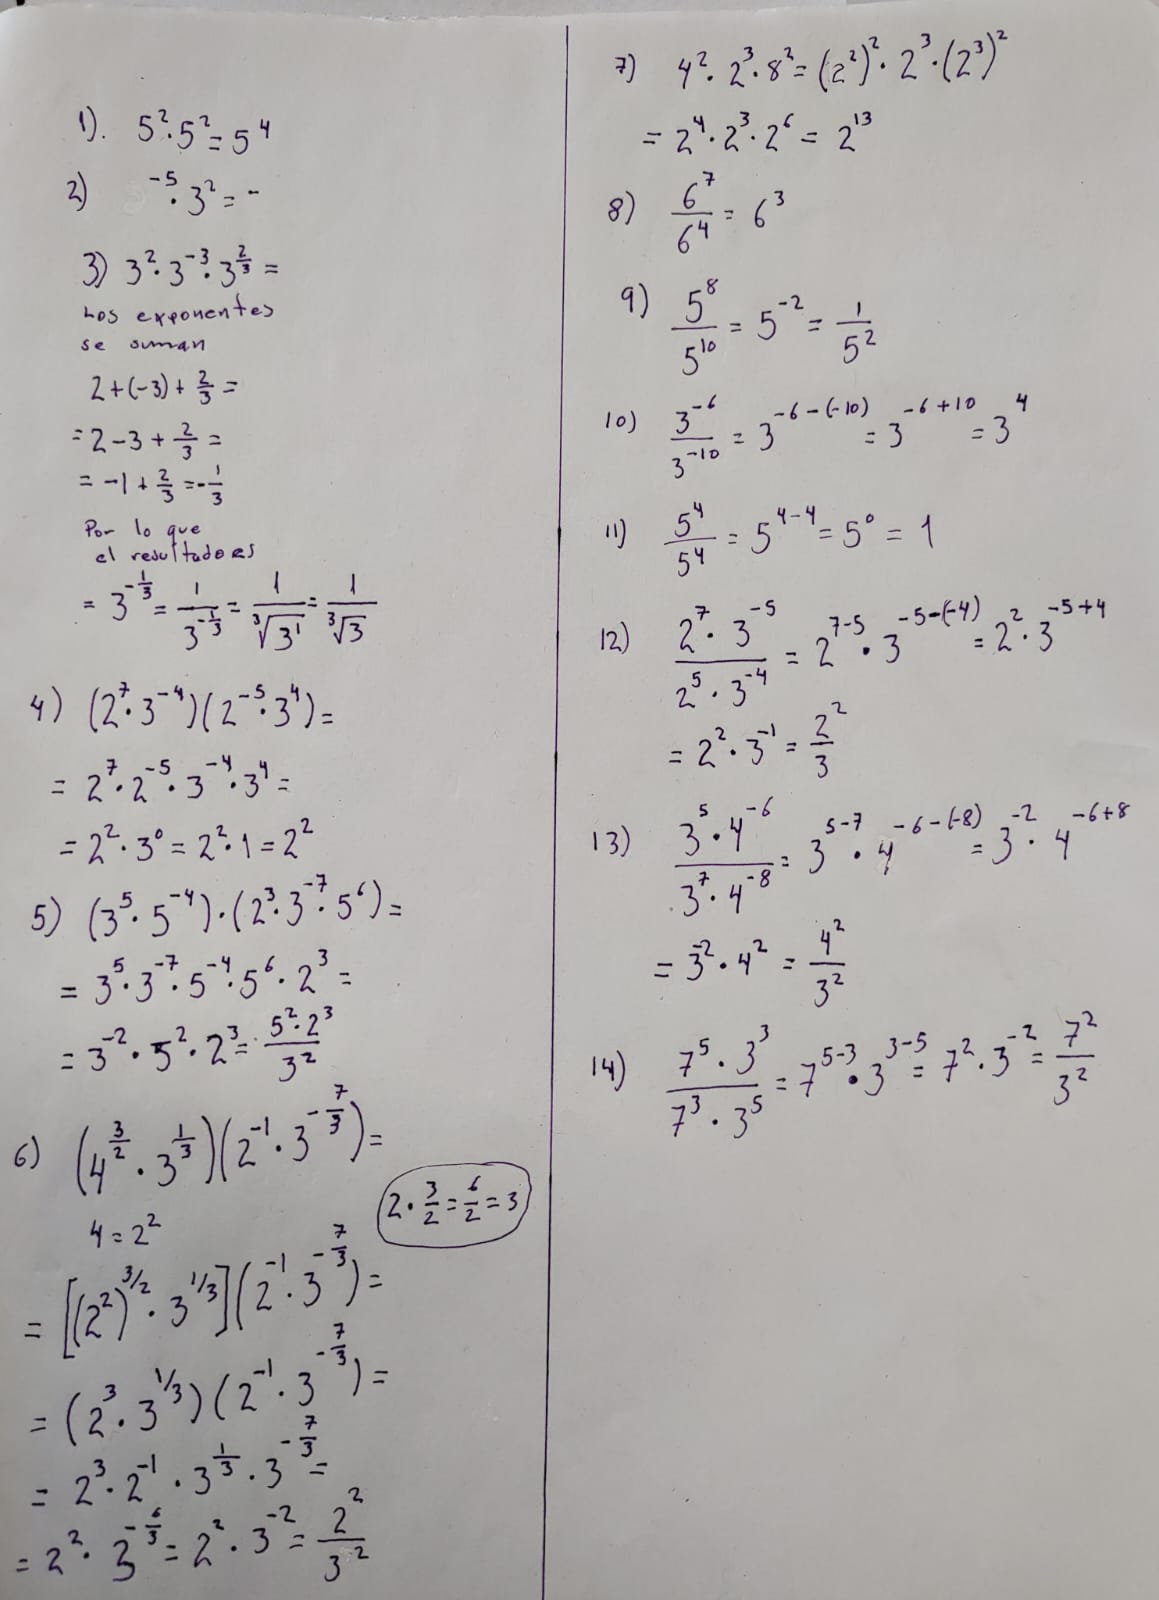 1). 5²·5² = 5⁴
2) ⁻⁵·3² = -
3) 3²·3⁻³·3^(2/3) =
Los exponentes
se suman
2+(-3)+ 2/3 =
= 2-3+ 2/3 =
= -1+ 2/3 = -1/3
Por lo que
el resultado es
= 3^(-1/3) = 1/3^(-1/3) = 1/∛3¹ = 1/∛3
4) (2⁷·3⁻⁴)(2⁻⁵·3⁴) =
= 2⁷·2⁻⁵·3⁻⁴·3⁴ =
= 2²·3⁰ = 2²·1 = 2²
5) (3⁵·5⁻⁴)·(2³·3⁻⁷·5⁶) =
= 3⁵·3⁻⁷·5⁻⁴·5⁶·2³ =
= 3⁻²·5²·2³ = 5²·2³/3²
6) (4^(3/2)·3^(1/3))(2⁻¹·3^(-7/3)) =
4 = 2²
2·3/2 = 6/2 = 3
= [(2²)^(3/2)·3^(1/3)](2⁻¹·3^(-7/3)) =
= (2³·3^(1/3))(2⁻¹·3^(-7/3)) =
= 2³·2⁻¹·3^(1/3)·3^(-7/3) =
= 2²·3^(-6/3) = 2²·3⁻² = 2²/3⁻²
7) 4²·2³·8² = (2²)²·2³·(2³)²
= 2⁴·2³·2⁶ = 2¹³
8) 6⁷/6⁴ = 6³
9) 5⁸/5¹⁰ = 5⁻² = 1/5²
10) 3⁻⁶/3⁻¹⁰ = 3^(-6-(-10)) = 3^(-6+10) = 3⁴
11) 5⁴/5⁴ = 5⁴⁻⁴ = 5⁰ = 1
12) 2⁷·3⁻⁵/2⁵·3⁻⁴ = 2⁷⁻⁵·3^(-5-(-4)) = 2²·3^(-5+4)
= 2²·3⁻¹ = 2²/3
13) 3⁵·4⁻⁶/3⁷·4⁻⁸ = 3⁵⁻⁷·4^(-6-(-8)) = 3⁻²·4^(-6+8)
= 3⁻²·4² = 4²/3²
14) 7⁵·3³/7³·3⁵ = 7⁵⁻³·3³⁻⁵ = 7²·3⁻² = 7²/3²